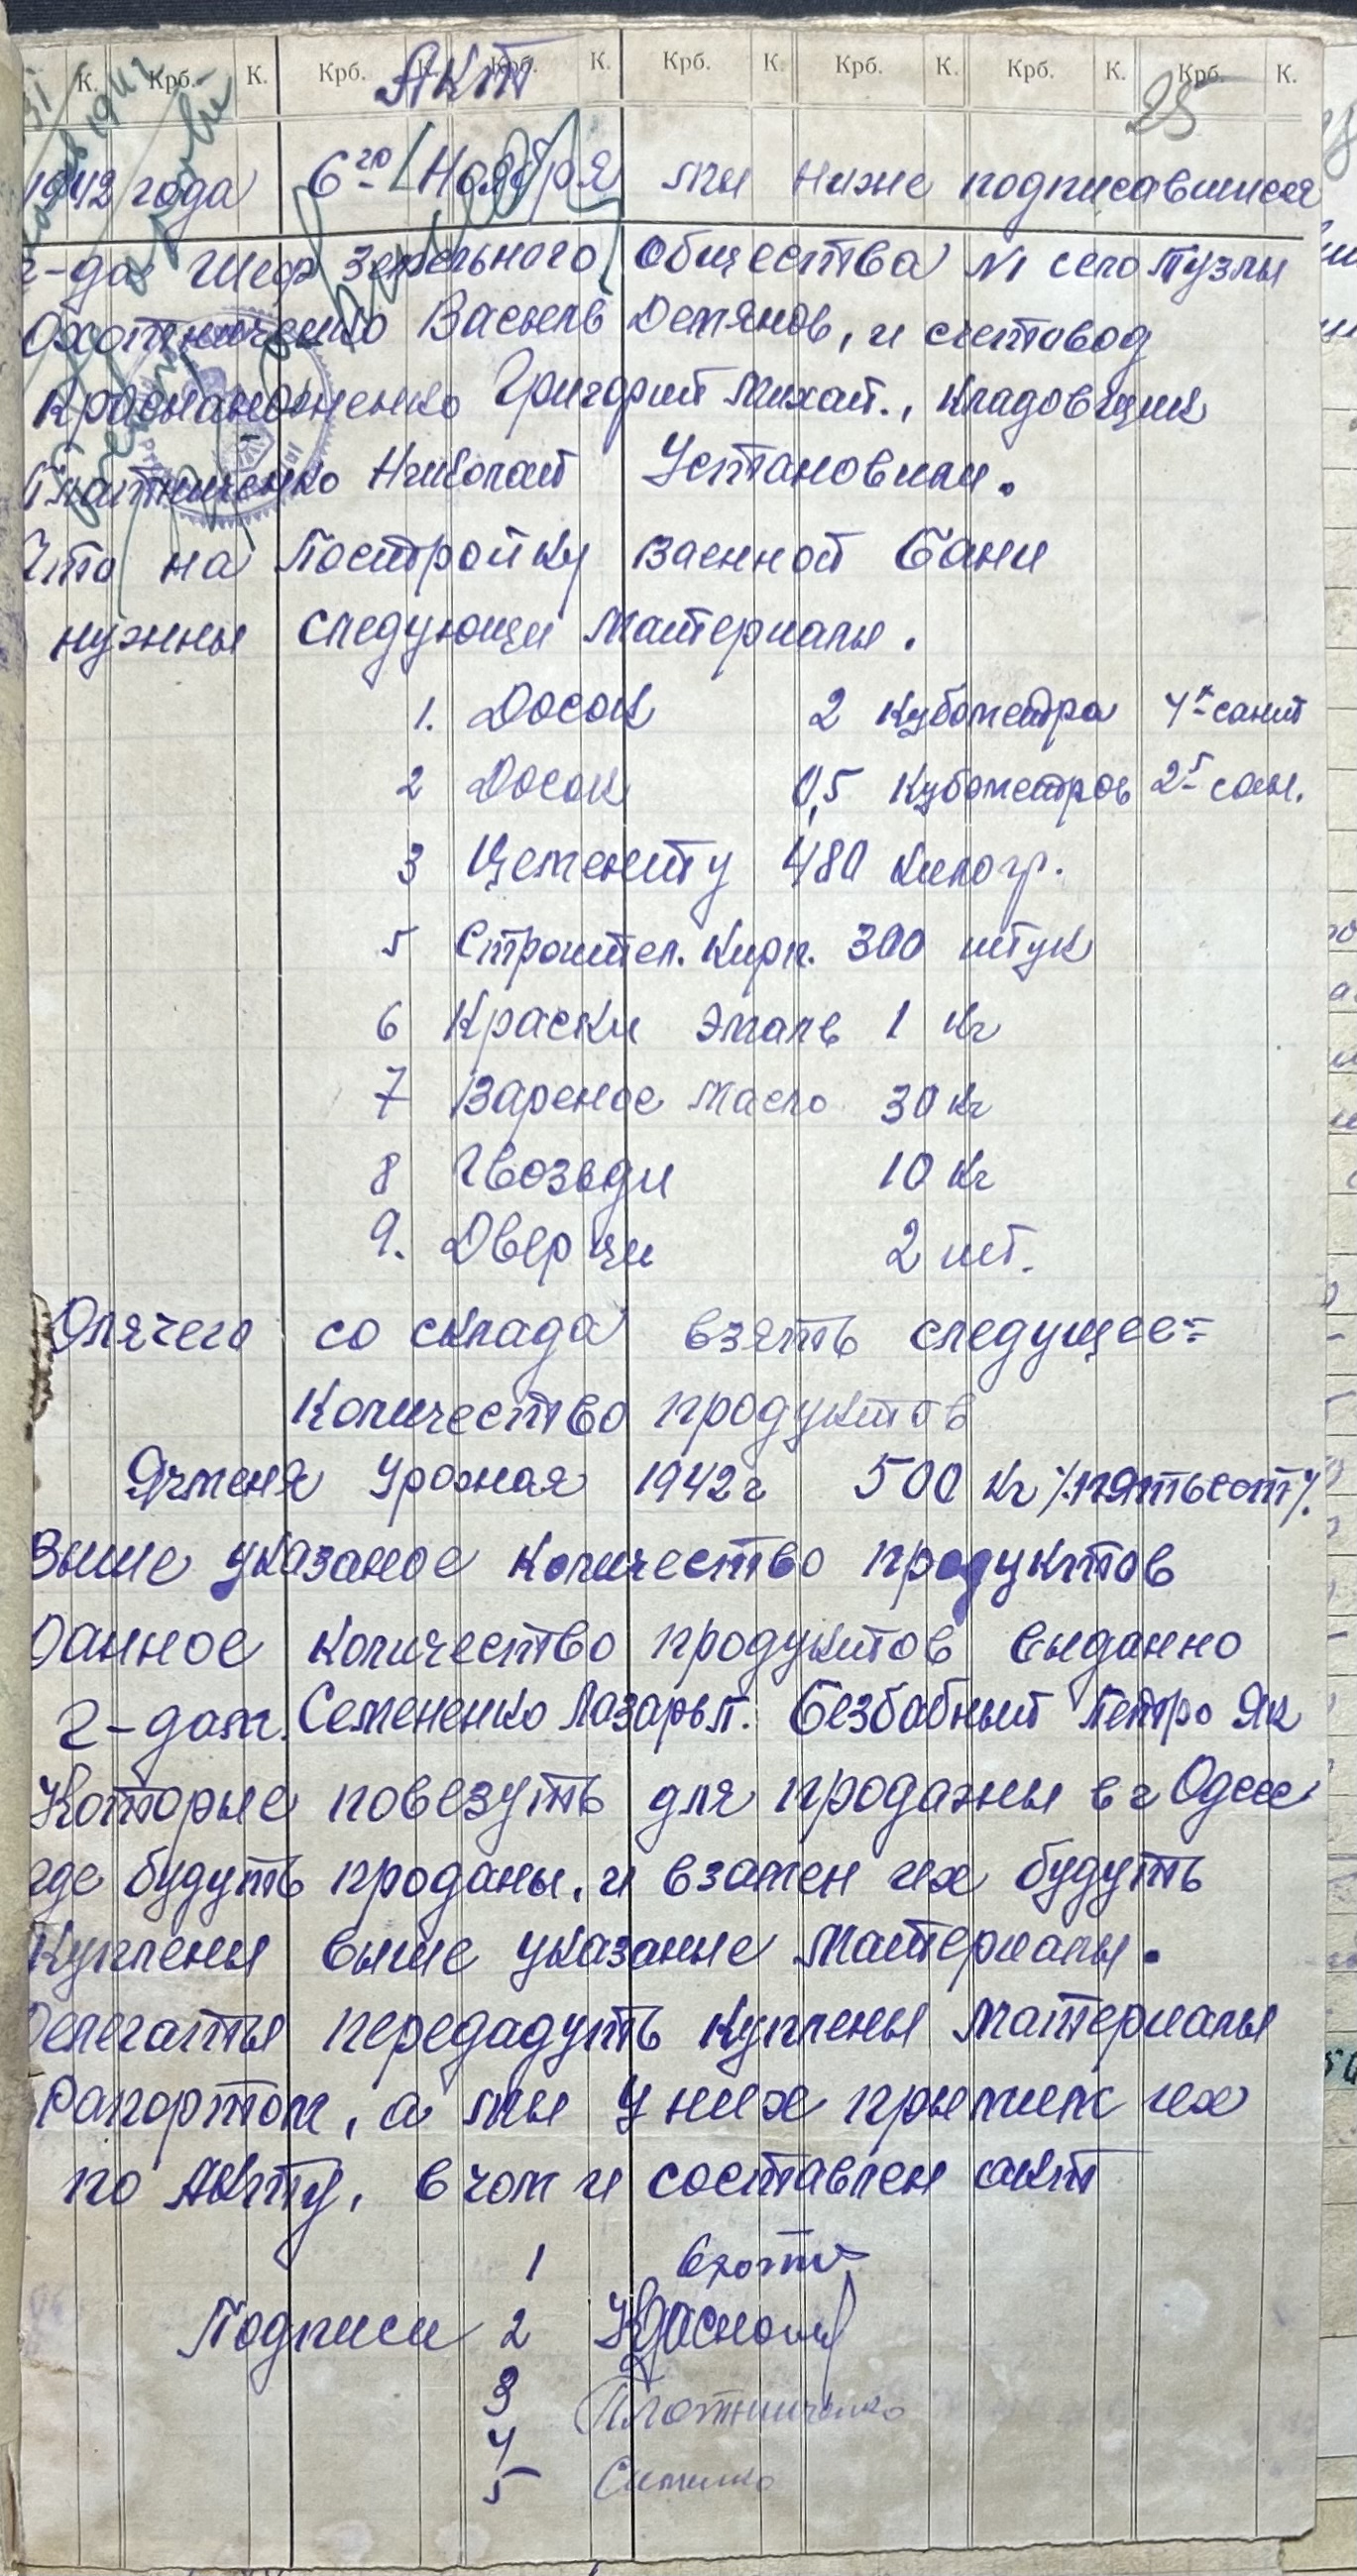 К. Крб. К. Крб. К. Крб. К. Крб. К. Крб. К. Крб. К. Крб. К.
Акт
25
1942 года 6го Ноября мы ниже подписавшиеся
г-да Шеф Земельного Общества №1 село Тузлы
Охотниченко Васьель Демянов, и счетовод
Григорий Михай., Кладовщик
Плотниченко Николай Установили.
Что на Постройку Ваенной Бани
нужны следующи Материалы.
1. Досок 2 Кубометра 4х санит
2 Досок 0,5 Кубометров 25 сан.
3 Цементу 480 килогр.
5 Строител. Кирп. 300 штук
6 Краски эмаль 1 Кг
7 Вареное масло 30 Кг
8 Гвозьди 10 Кг
9. Дверци 2 шт.
Длячего со склада взять следущее=
Количество продуктов
Ячменя Урожая 1942 г 500 Кг /.пятьсот/.
Выше указаное количество продуктов
Данное количество продуктов выданно
г-дам. Семененко Лазарь П. Безбабный Петро Як
Которые повезуть для продажы в г Одесс
где будуть проданы, и взамен их будуть
Куплены выше указанные Материалы.
Делегаты передадуть Куплены Материалы
Рапортом, а мы у них прымим их
по Акту, в чом и составлен акт
1 Охотн
Подписи 2 Красно
3 Плотниченко
4
5